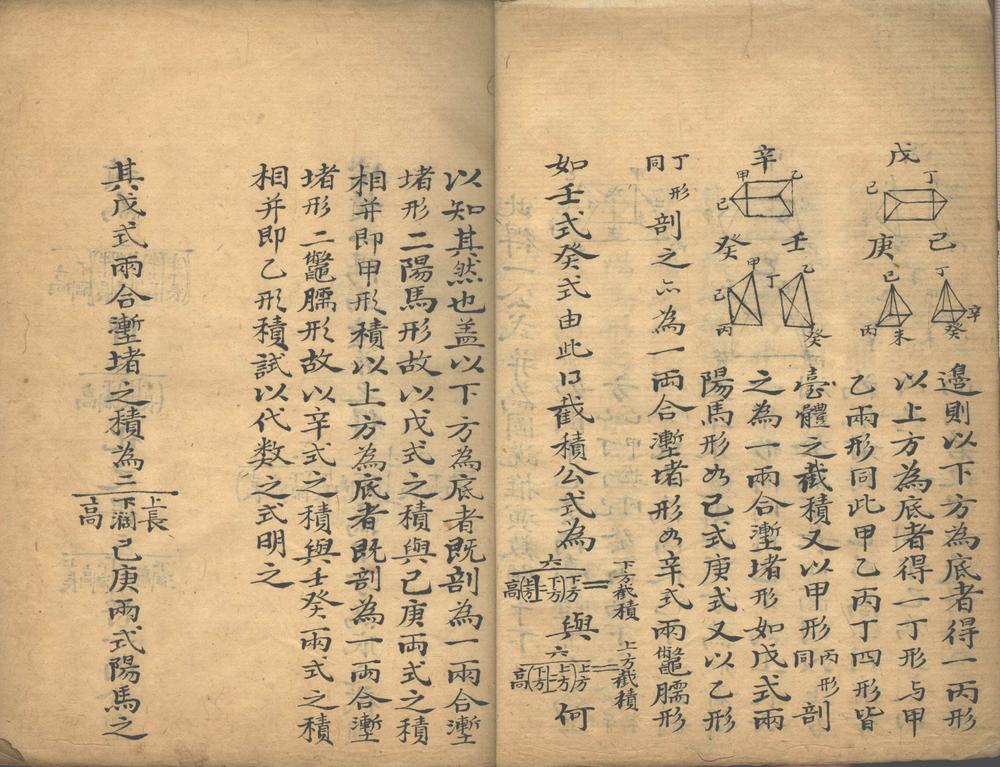 戊
丁
己
辛
甲
乙
己
庚
己
己
丙
未
丁
辛
癸
癸
壬
甲
己
丙
丁
乙
癸
邊則以下方為底者得一丙形
以上方為底者得一丁形与甲
乙兩形同此甲乙丙丁四形皆
臺體之截積又以甲形丙形同剖
之為一兩合壍堵形如戊式兩
陽馬形如己式庚式又以乙形
丁形同剖之亦為一兩合壍堵形如辛式兩鼈臑形
如壬式癸式由此截積公式為
下方截積
六
高
與
上方截積
六
高
何
以知其然也盖以下方為底者既剖為一兩合壍
堵形二陽馬形故以戊式之積與己庚両式之積
相并即甲形積以上方為底者既剖為一両合壍
堵形二鼈臑形故以辛式之積與壬癸兩式之積
相并即乙形積試以代数之式明之
其戊式兩合壍堵之積為二下濶上長高己庚兩式陽馬之